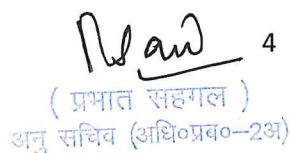 4
( प्रभात सहगल )
अनु सचिव (अधि०प्रब०–2अ)